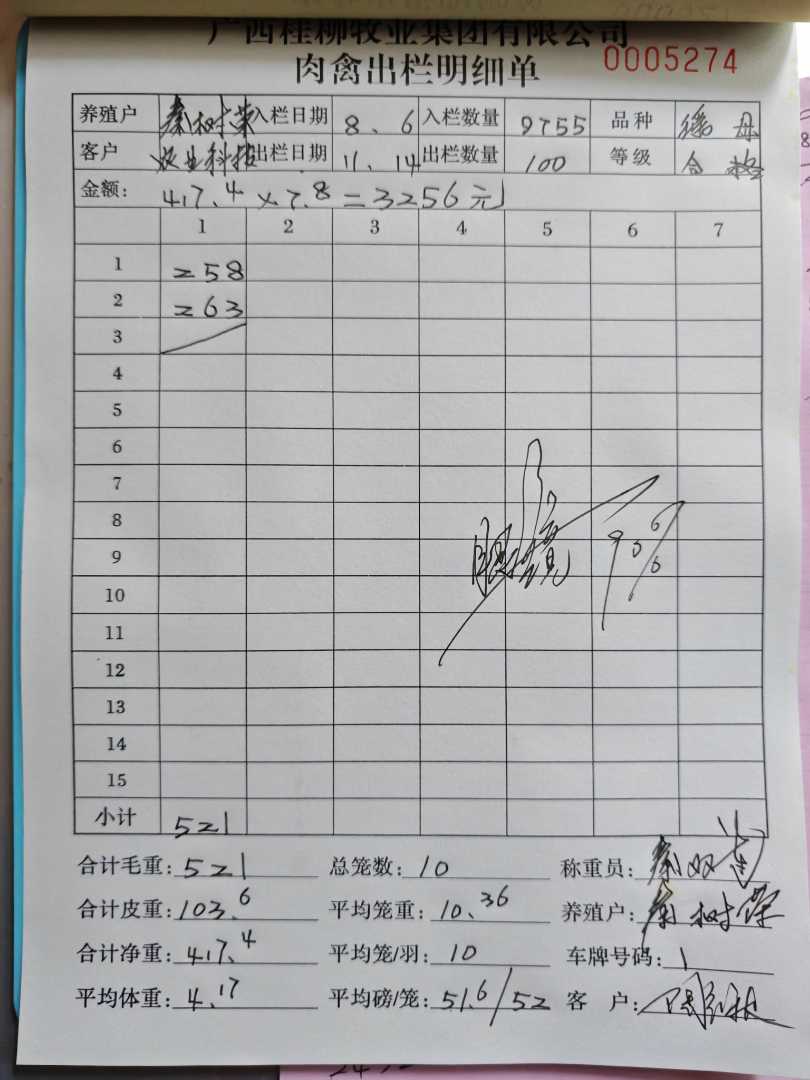 广西桂柳牧业集团有限公司
肉禽出栏明细单 0005274
养殖户 秦树荣 入栏日期 8.6 入栏数量 9755 品种
客户 农业科技 出栏日期 11.14 出栏数量 100 等级 合格
金额: 417.4 × 7.8 = 3256元
1 2 3 4 5 6 7
1 258
2 263
3
4
5
6
7
8
9
10
11
12
13
14
15
小计 521
合计毛重: 521 总笼数: 10 称重员:
合计皮重: 103.6 平均笼重: 10.36 养殖户: 秦树荣
合计净重: 417.4 平均笼/羽: 10 车牌号码: 1
平均体重: 4.17 平均磅/笼: 51.6/52 客 户: